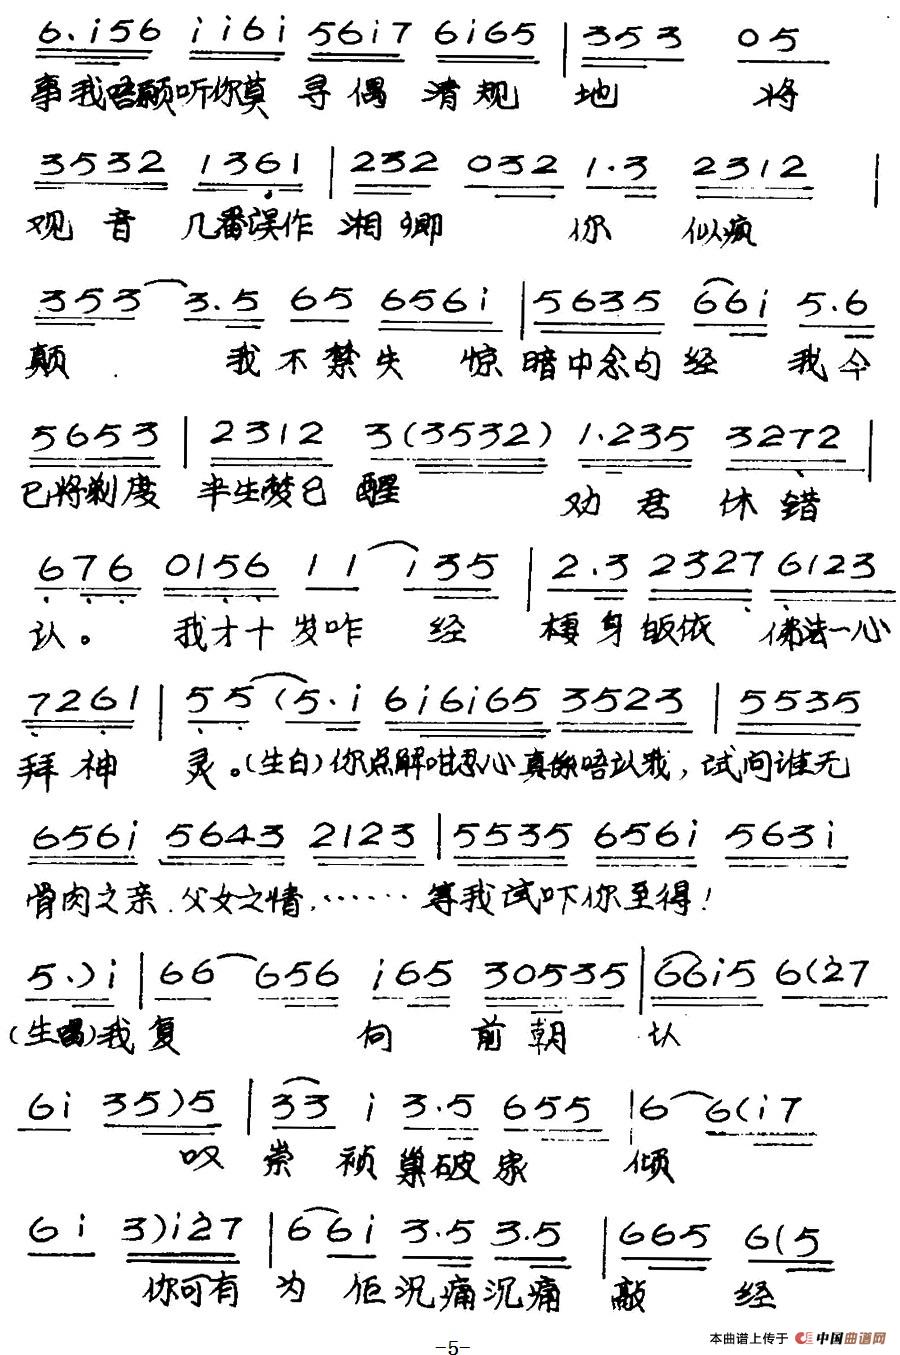 6.i56 ii6i 56i7 6i65 | 353 05
事我唔愿听你莫 寻偶 清规 地 将
3532 1361 | 232 032 1.3 2312 |
观音 几番误作 湘卿 你 似疯
353 3.5 65 656i | 5635 66i 5.6
颠. 我不禁失 惊 暗中念句经 我今
5653 | 2312 3(3532) 1.235 3272 |
已将剃度 半生梦已 醒 劝君 休错
676 0156 11 135 | 2.3 2327 6123
认。 我才十岁咋 经 棲身皈依 佛法一心
7261 | 55 (5.i 6i6i65 3523 | 5535
拜神 灵。(生白)你点解咁忍心真係唔认我,试问谁无
656i 5643 2123 | 5535 656i 563i
骨肉之亲.父女之情,……等我试吓你至得!
5.)i | 66 656 i65 30535 | 66i5 6(27
(生唱)我复 向 前朝 认
6i 35)5 | 33 i 3.5 655 | 6 6(i7
叹 崇 祯巢破家 倾
6i 3)i27 | 66i 3.5 3.5 | 665 6(5
你可有 为 佢沉痛沉痛 敲 经
-5-
本曲谱上传于 中国曲谱网